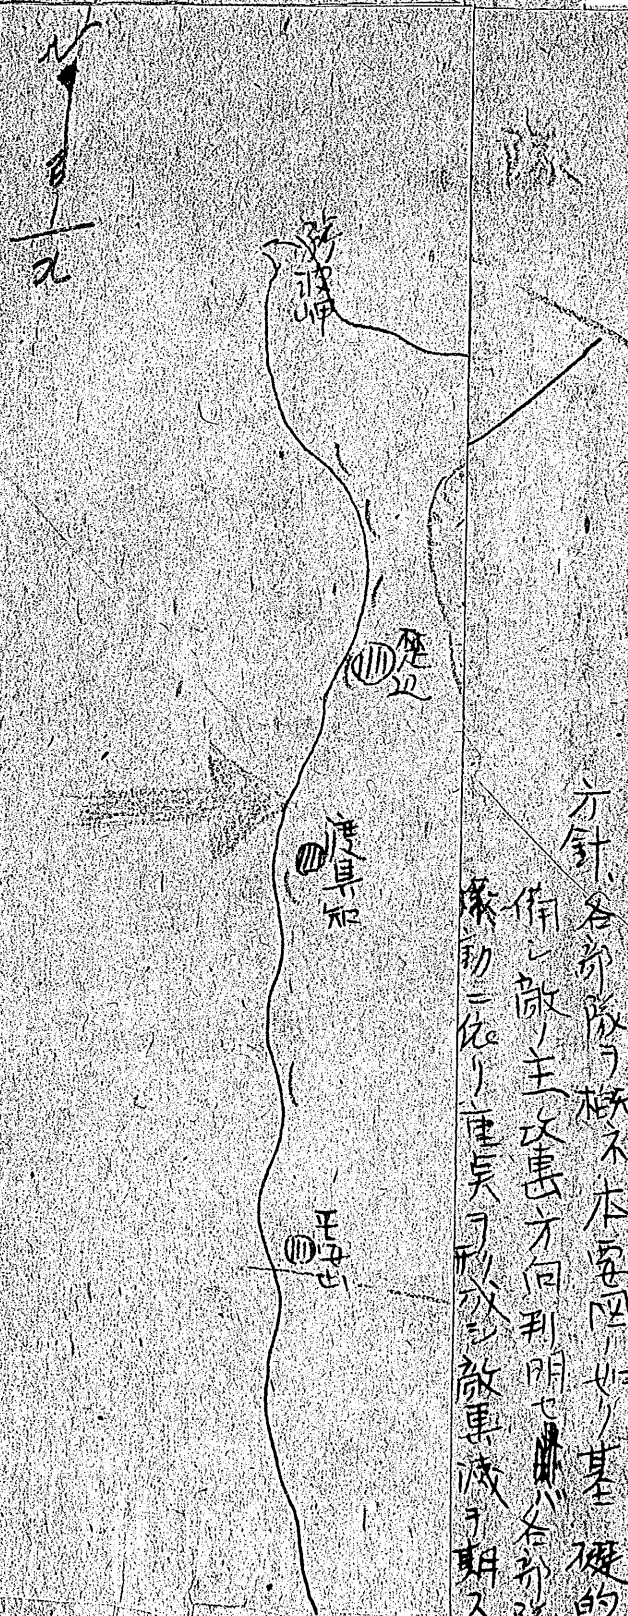 N
隊
残波岬
楚辺
渡具知
平安山
方針、各部隊ヲ概ネ本要図ノ如ク基礎的
備シ敵ノ主攻撃方向判明セバ各部
機動ニ依リ重点ヲ形成シ敵軍滅ヲ期ス